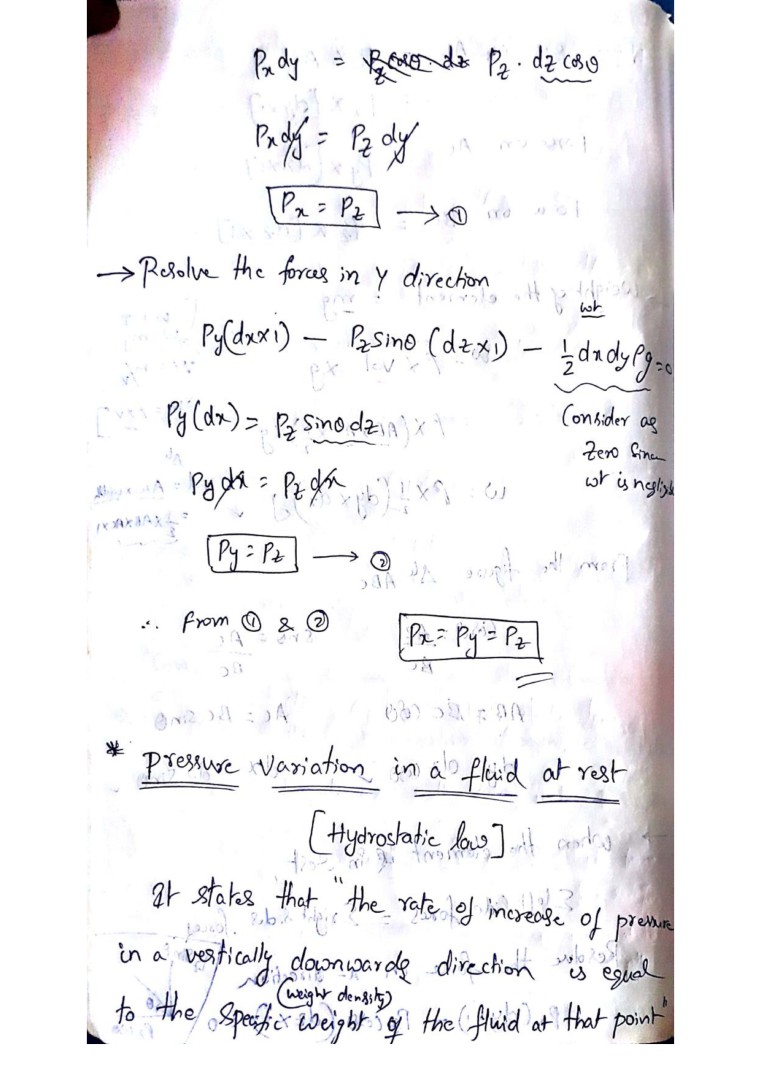 Px dy = Pz . dz cosθ
Px dy = Pz dy
Px = Pz → ①
→ Resolve the forces in Y direction
wt
Py(dx×1) − Pz sinθ (dz×1) − 1/2 dx dy ρg = 0
Py (dx) = Pz sinθ dz
Consider as
Zero since
wt is
Py dx = Pz dx
Py = Pz → ②
∴ from ① & ② Px = Py = Pz
* Pressure Variation in a fluid at rest
[Hydrostatic law]
It states that "the rate of increase of pressure
in a vertically downwards direction is equal
(weight density)
to the Specific weight of the fluid at that point"